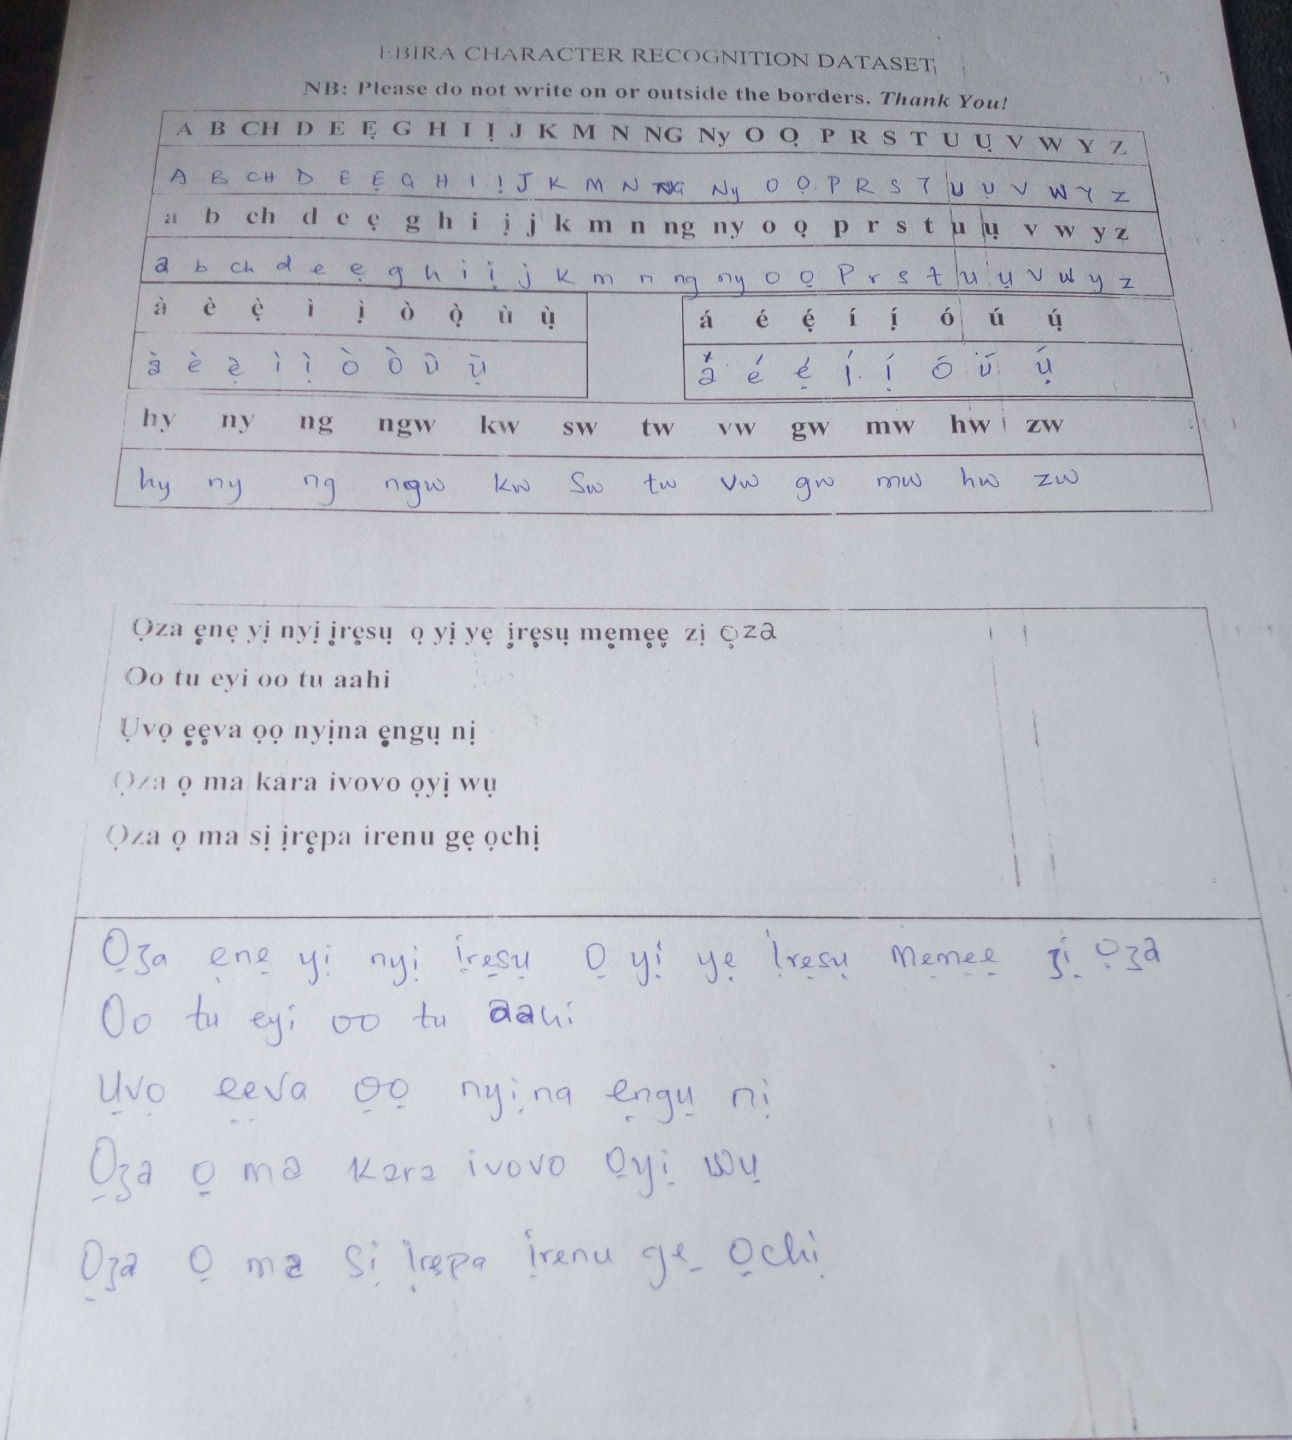 EBIRA CHARACTER RECOGNITION DATASET
NB: Please do not write on or outside the borders. Thank You!
A B CH D E Ẹ G H I Ị J K M N NG Ny O Ọ P R S T U Ụ V W Y Z
A B CH D E Ẹ G H I Ị J K M N NG Ny O Ọ P R S T U Ụ V W Y Z
a b ch d e ẹ g h i ị j k m n ng ny o ọ p r s t u ụ v w y z
a b ch d e ẹ g h i ị j k m n ng ny o ọ p r s t u ụ v w y z
à è ẹ̀ ì ị̀ ò ọ̀ ù ụ̀
á é ẹ́ í ị́ ó ú ụ́
à è ẹ̀ ì ị̀ ò ò ù ụ̀
á é ẹ́ í ị́ ó ú ụ́
hy ny ng ngw kw sw tw vw gw mw hw zw
hy ny ng ngw kw Sw tw vw gw mw hw zw
Ọza ẹnẹ yị nyị ịrẹsụ ọ yị yẹ ịrẹsụ mẹmẹẹ zị ọza
Oo tu eyi oo tu aahi
Ụvọ ẹẹva ọọ nyịna ẹngụ nị
Ọza ọ ma kara ivovo ọyị wụ
Ọza ọ ma sị ịrẹpa irenu gẹ ọchị
Ọza ẹnẹ yị nyị ịrẹsụ Ọ yị yẹ ịrẹsụ mẹmẹẹ zị ọza
Oo tu eyi oo tu aahi
Ụvọ ẹẹva ọọ nyịna ẹngụ nị
Ọza ọ ma kara ivovo ọyị wụ
Ọza ọ ma sị ịrẹpa ịrenu gẹ ọchị